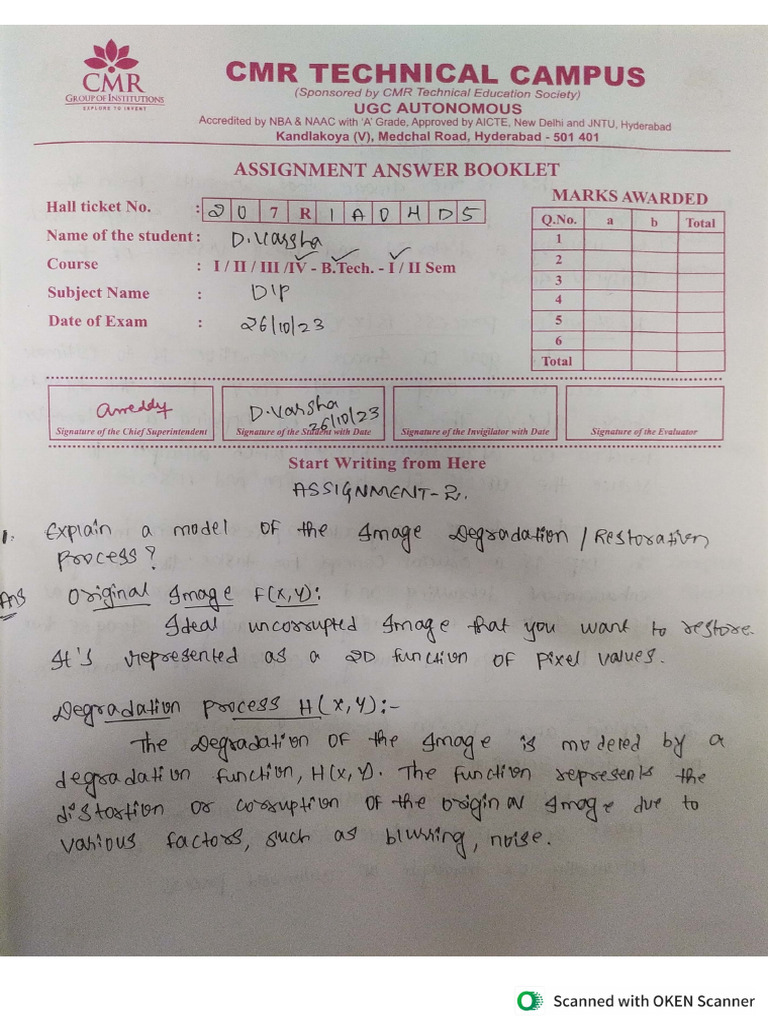 CMR
GROUP OF INSTITUTIONS
EXPLORE TO INVENT
CMR TECHNICAL CAMPUS
(Sponsored by CMR Technical Education Society)
UGC AUTONOMOUS
Accredited by NBA & NAAC with 'A' Grade, Approved by AICTE, New Delhi and JNTU, Hyderabad
Kandlakoya (V), Medchal Road, Hyderabad - 501 401
ASSIGNMENT ANSWER BOOKLET
MARKS AWARDED
Hall ticket No. : 2 0 7 R 1 A 0 4 D 5
Name of the student : D.Varsha
Course : I / II / III /IV - B.Tech. - I / II Sem
Subject Name : DIP
Date of Exam : 26/10/23
Q.No. a b Total
1
2
3
4
5
6
Total
D.Varsha
26/10/23
Signature of the Chief Superintendent
Signature of the Student with Date
Signature of the Invigilator with Date
Signature of the Evaluator
Start Writing from Here
ASSIGNMENT-2.
1. Explain a model of the Image Degradation / Restoration
process?
Ans Original Image F(x,y):
Ideal uncorrupted Image that you want to restore.
It's represented as a 2D function of pixel values.
Degradation process H(x,y):-
The Degradation of the Image is modeled by a
degradation function, H(x,y). The function represents the
distortion or corruption of the original Image due to
various factors, such as blurring, noise.
Scanned with OKEN Scanner